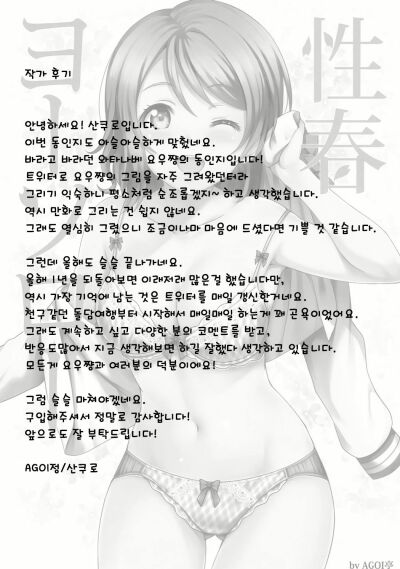 性春
ヨ
작가 후기
안녕하세요! 산쿠로입니다.
이번 동인지도 아슬아슬하게 맞췄네요.
바라고 바라던 와타나베 요우쨩의 동인지입니다!
트위터로 요우쨩의 그림을 자주 그려왔던터라
그리기 익숙하니 평소처럼 순조롭겠지~ 하고 생각했습니다.
역시 만화로 그리는 건 쉽지 않네요.
그래도 열심히 그렸으니 조금이나마 마음에 드셨다면 기쁠 것 같습니다.
그런데 올해도 슬슬 끝나가네요.
올해 1년을 되돌아보면 이래저래 많은걸 했습니다만,
역시 가장 기억에 남는 것은 트위터를 매일 갱신한거네요.
천구같던 돌담여행부터 시작해서 매일매일 하는게 꽤 곤욕이었어요.
그래도 계속하고 싶고 다양한 분의 코멘트를 받고,
반응도많아서 지금 생각해보면 하길 잘했다 생각하고 있습니다.
모든게 요우쨩과 여러분의 덕분이에요!
그럼 슬슬 마쳐야겠네요.
구입해주셔서 정말로 감사합니다!
앞으로도 잘 부탁드립니다!
AGOI정/산쿠로
by AGOI亭